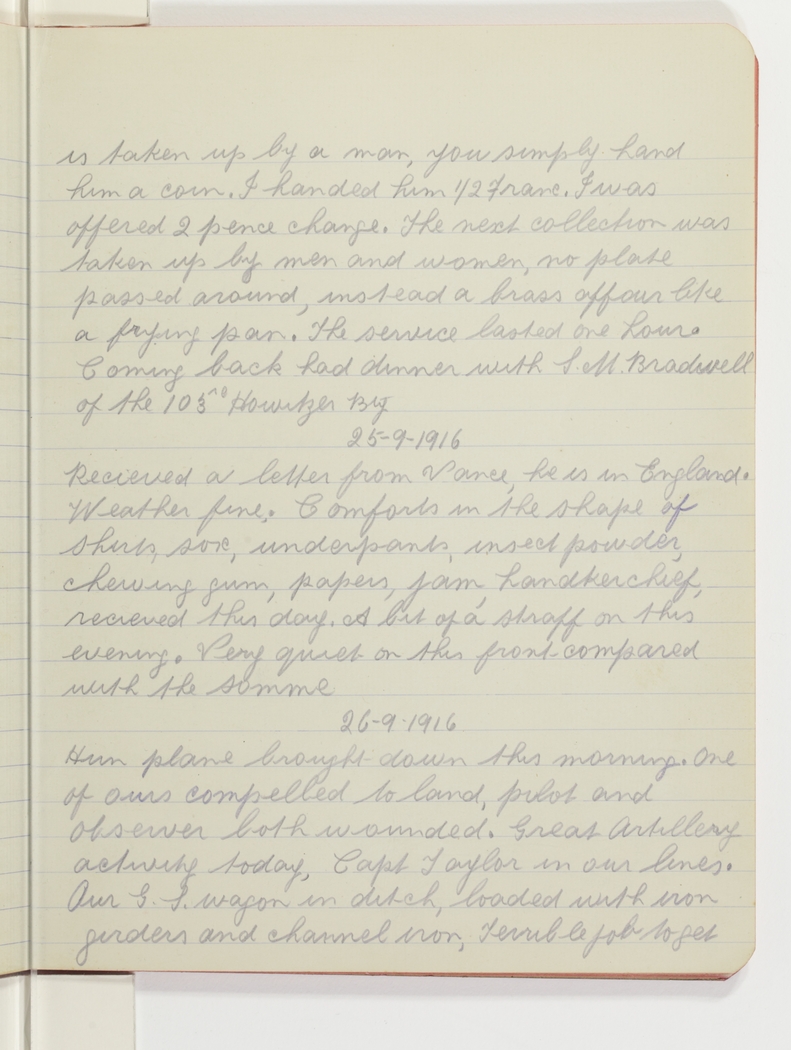 is taken up by a man, you simply hand
him a coin. I handed him 1/2 Franc. I was
offered 2 pence change. The next collection was
taken up by men and women, no plate
passed around, instead a brass affair like
a frying pan. The service lasted one hour.
Coming back had dinner with S.M. Bradwell
of the 103rd Howitzer Bty
25-9-1916
Recieved a letter from Vance, he is in England.
Weather fine. Comforts in the shape of
shirts, sox, underpants, insect powder,
chewing gum, papers, jam, handkerchief,
recieved this day. A bit of a straff on this
evening. Very quiet on this front compared
with the Somme
26-9-1916
Hun plane brought down this morning. One
of ours compelled to land, pilot and
observer both wounded. Great Artillery
activity today, Capt Taylor in our lines.
Our G.S. wagon in ditch, loaded with iron
girders and channel iron, Terrible job to get